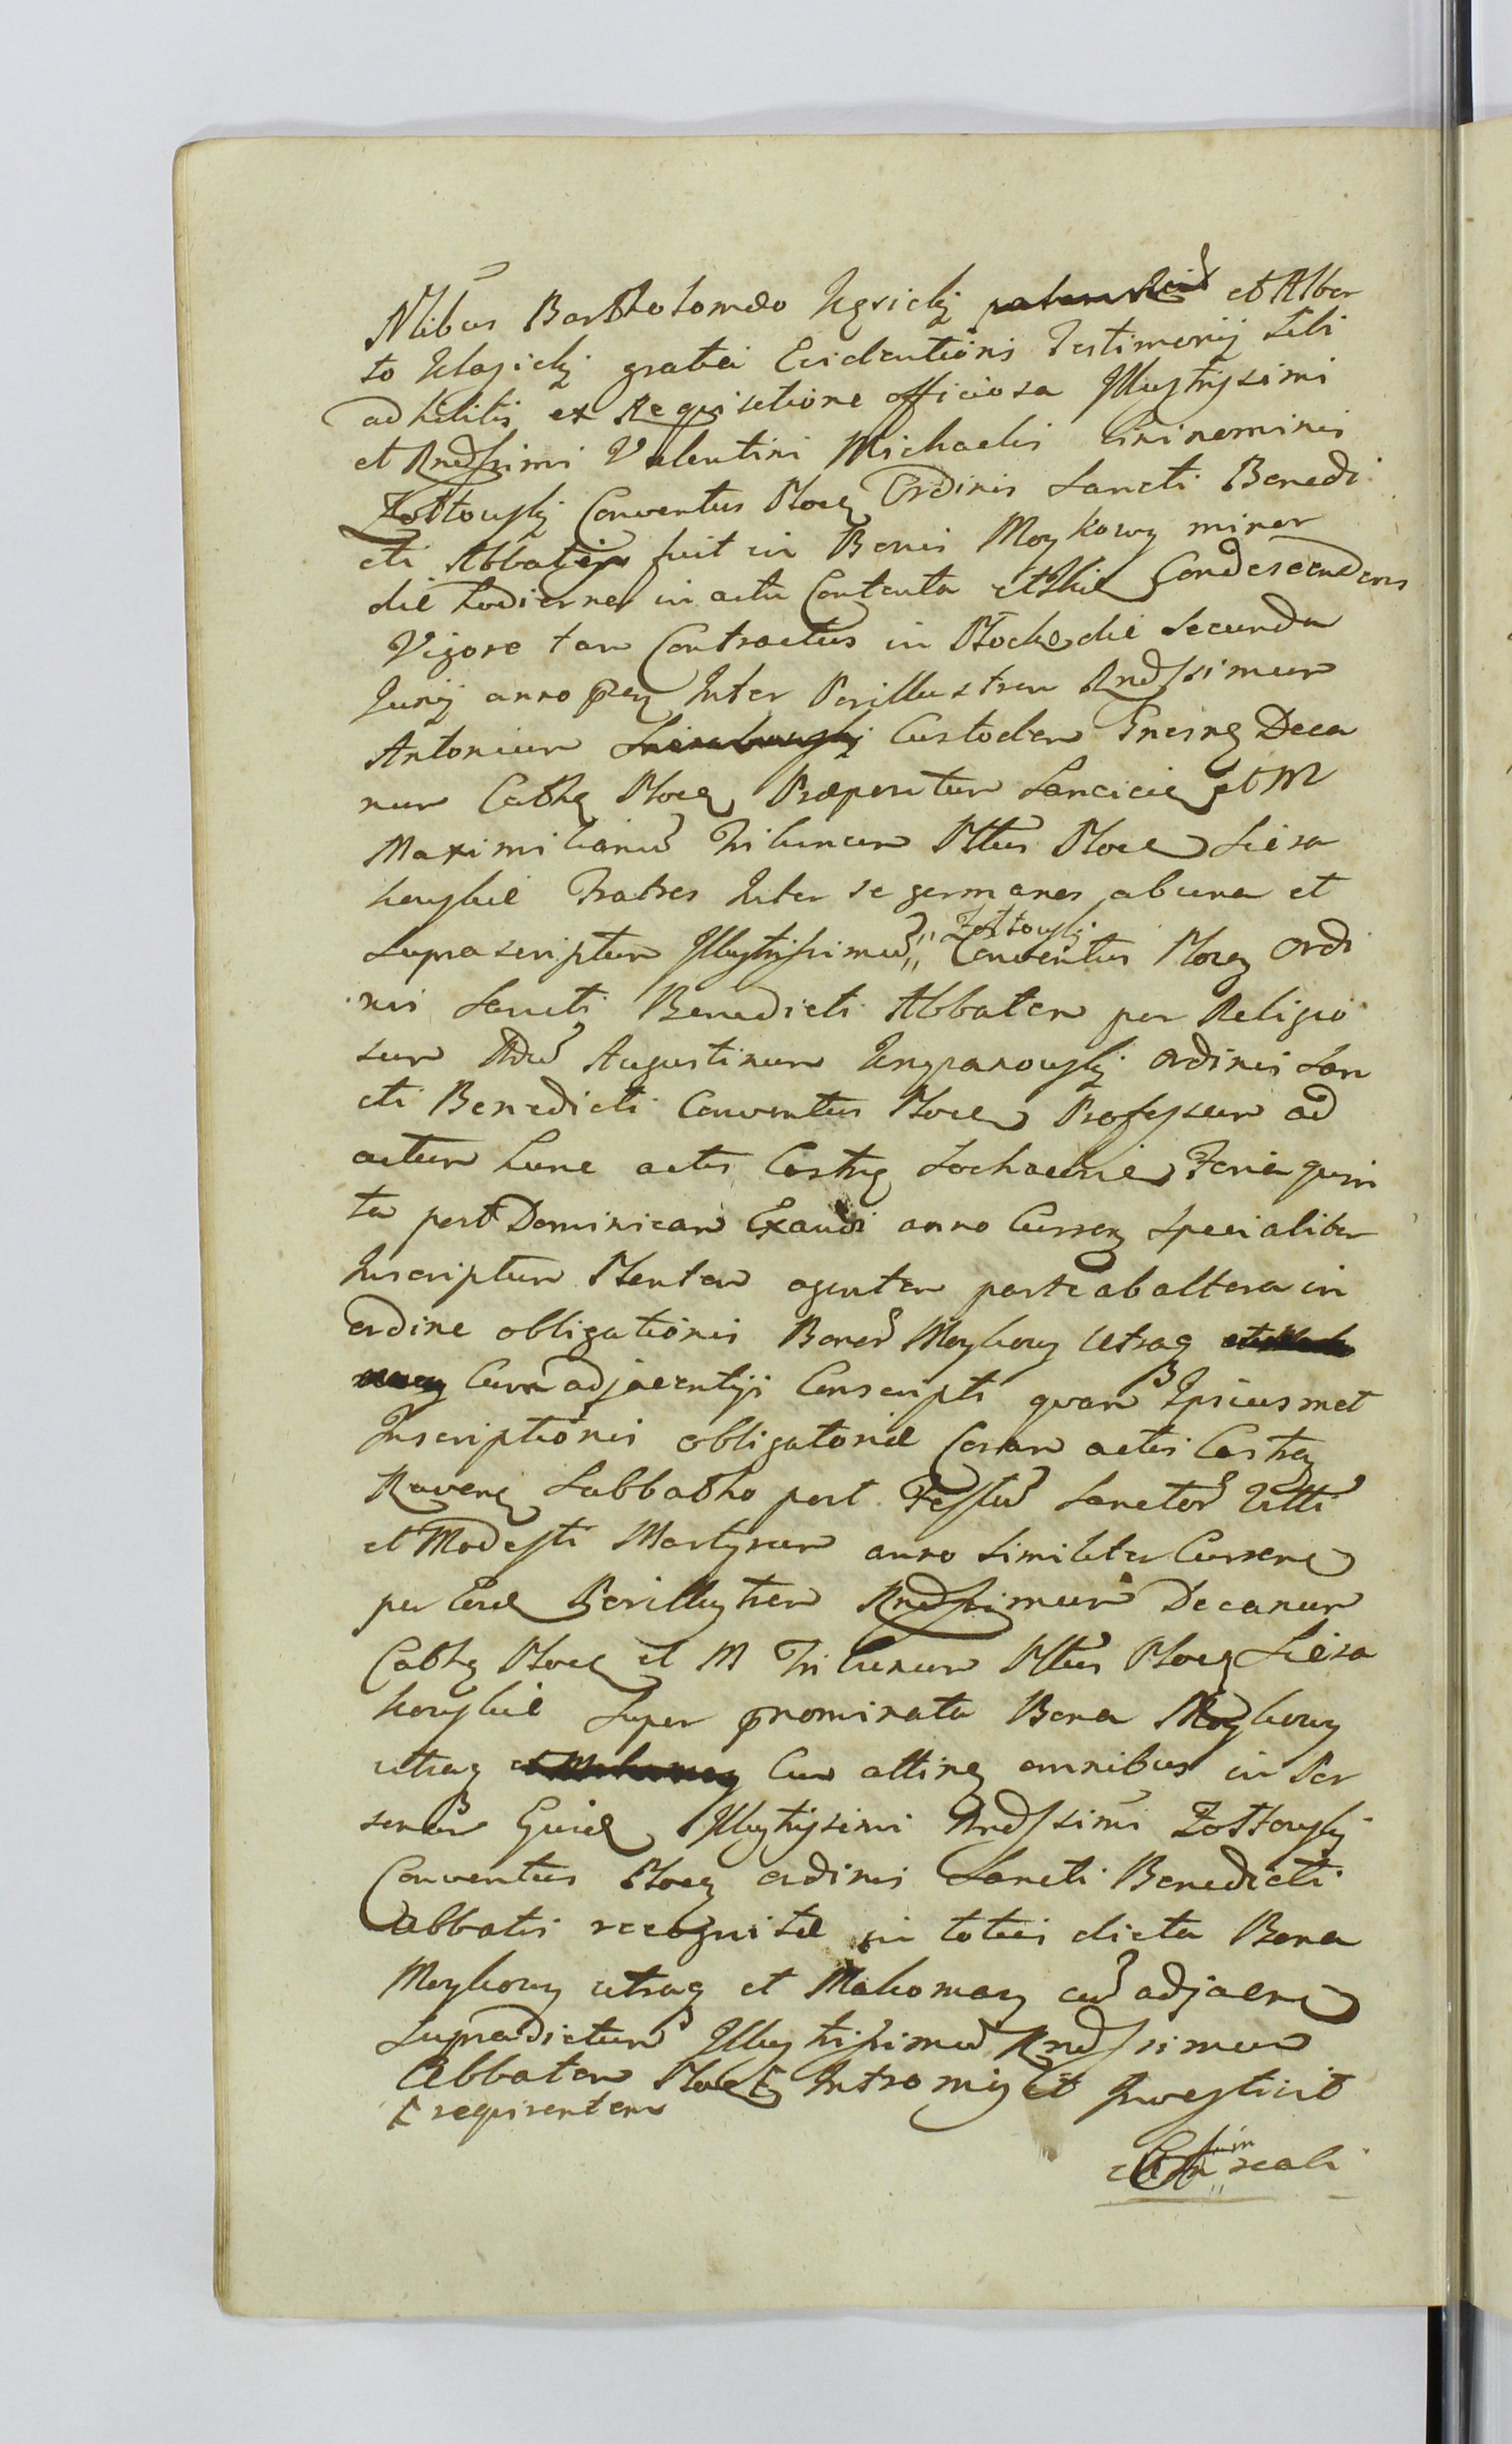 Nlibus Bartholomæo et Alber
to gratia Evidentioris Testimonij Sibi
adhibitis ex Requisitione officiosa Jllustrissimi
et Rndssimi Valentini Michaelis binominis
Zołtowskj Conventus Plocę Ordinis Sancti Benedi
cti Abbatis fuit in Bonis Moykowy minor
die hodierna in actu Contenta Condescendens
Vigore tam Contractus in Plocke die Secunda
Junij anno Inter Perillustrem Rndssimum
Antonium Custodem Gnesnę Deca
num Cathę Plocę Præpositum Lancicię et M
Maximilianũ Tribunum Plttus Ploce Siera
kowskie Fratres Inter se germanos ab una et
Suprascriptum Jllustrissimũ Zołtowskj Conventus Plocę Ordi
nis Sancti Benedicti Abbatem per Religio
sum Adũ Augustinum Ordinis San
cti Benedicti Conventus Ploce Professum ad
actum hunc actis Castrę Sochacivie Feria quin
ta post Dominicam Exaudi anno Currenę Specialiter
Inscriptum Plentem agentem parte ab altera in
ordine obligationis Bonor Moykowy Utraq
Cum adjacentijs Conscripti quam Ipsiusmet
Inscriptionis obligatoriæ Coram actis Castrę
Ravenę Sabbatho post Festũ Sanctor Vitti
et Modesti Martyrum anno Similiter Currenę
per Perillustrem Rndssimum Decanum
Cathę Plocę et M Tribunum Plttus Plocę Siera
kowskie Super prnominata Bona Moykowy
utraq Cum attinę omnibus in Per
sonam Jllustrissimi Rndssimi Zołtowskj
Conventus Plocę ordinis Sancti Benedicti
Abbatis recognitæ in toties dicta Bona
Moykowy utraq et Makomazy cũ adjacenę
Supradictum Jllustrissimũ Rndssimum
Abbatem Plocę Intromisit Investivit
requirentem